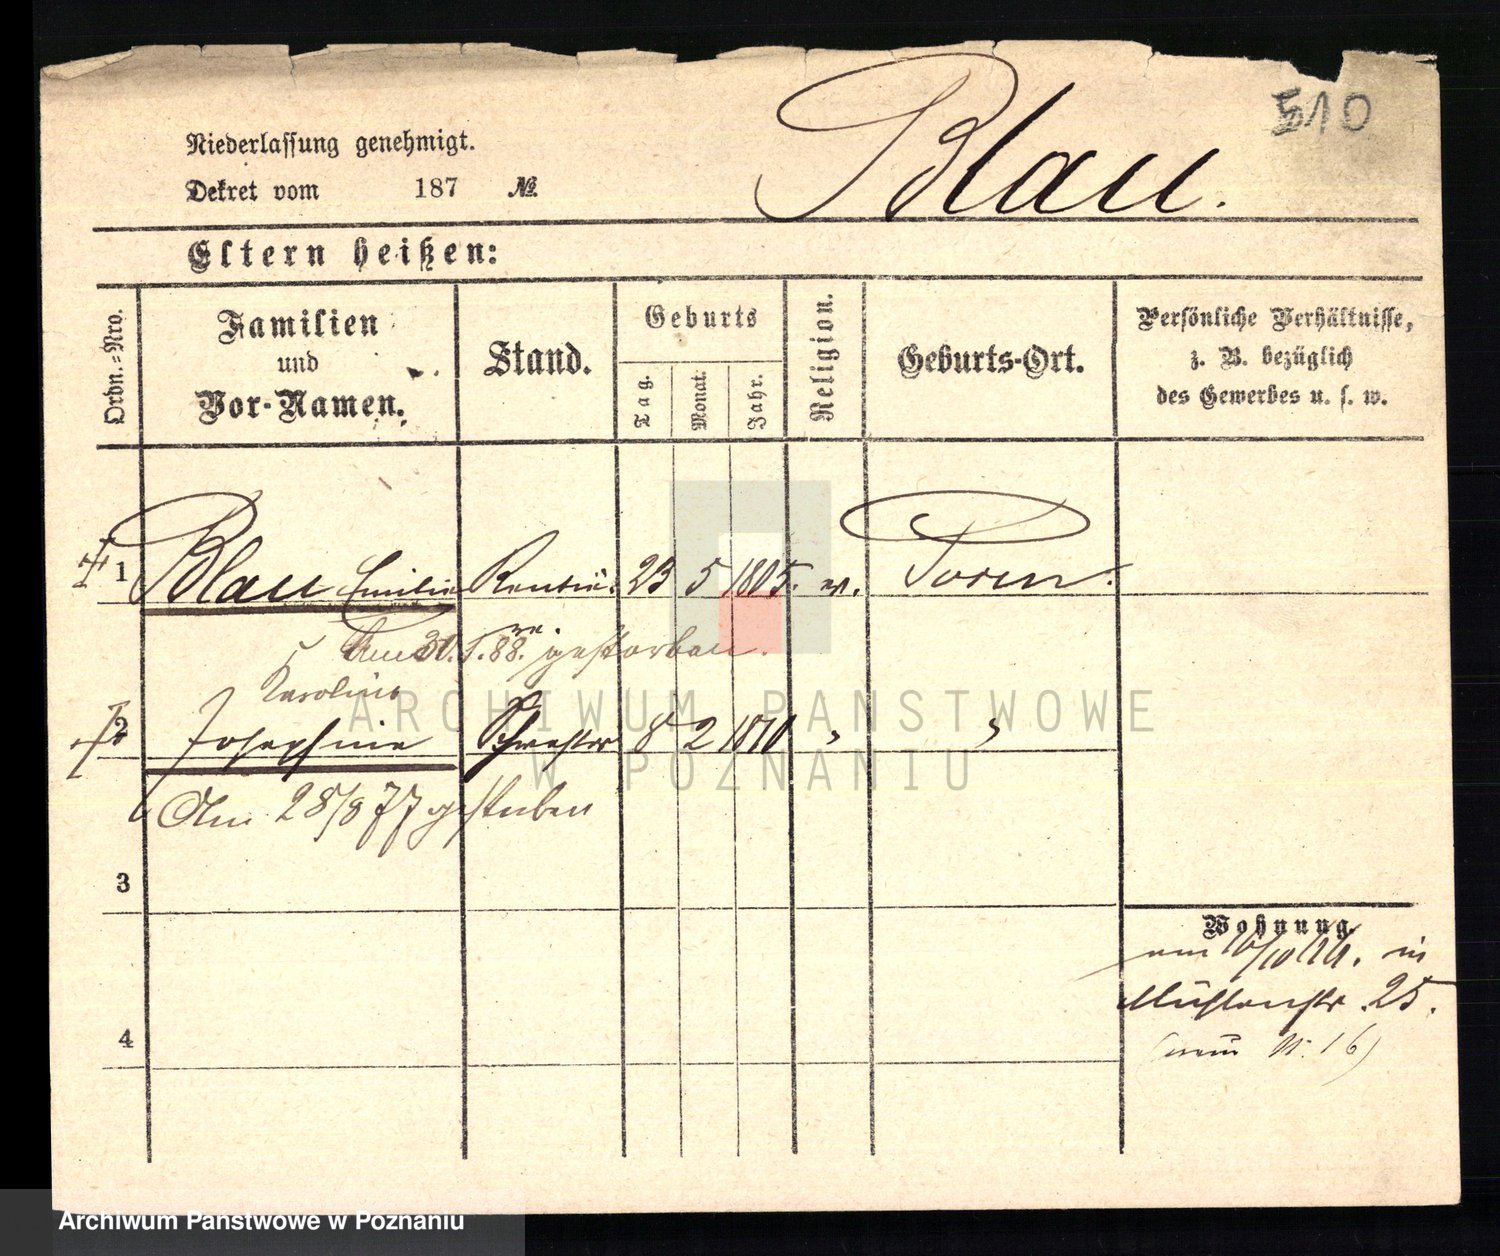 510
Blau.
Niederlassung genehmigt.
Dekret vom 187 №
Eltern heißen:
Ordn.-Nro.
Familien und Vor-Namen.
Stand.
Geburts
Tag. Monat. Jahr.
Religion.
Geburts-Ort.
Persönliche Verhältnisse,
z. B. bezüglich
des Gewerbes u. s. w.
1 Blau Emilie 23 5 1805. Posen.
gestorben.
Karoline
2 Josephine Schwester 8 2 1810 "
Am 28/8 77 gestorben
3
Wohnung.
in
Mühlenstr. 25.
4
(neu N. 16)
ARCHIWUM PAŃSTWOWE
W POZNANIU
Archiwum Państwowe w Poznaniu